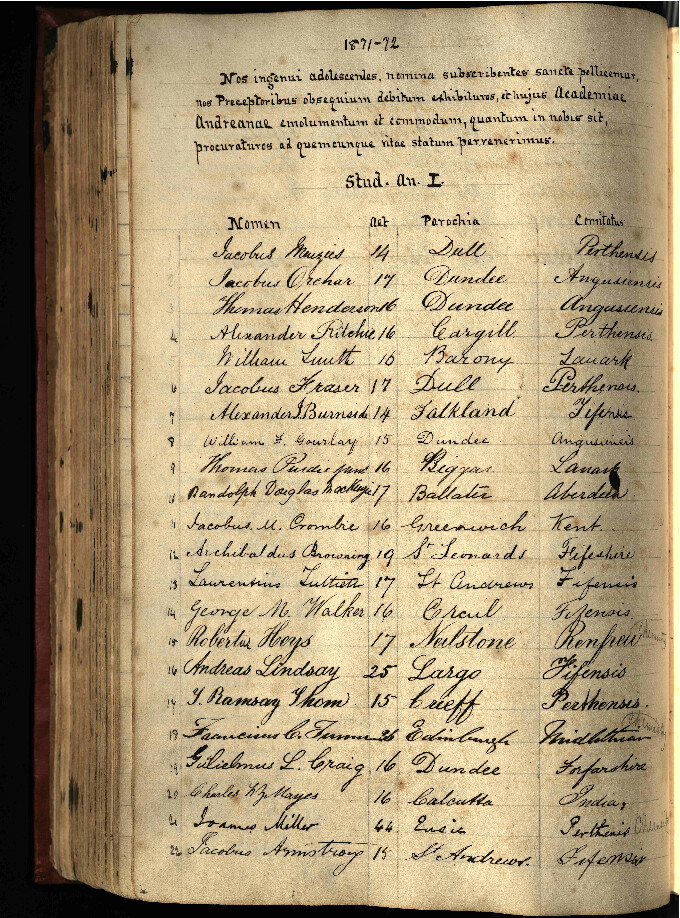 1871-72
Nos ingenui adolescentes, nomina subscribentes sancte pollicemur,
nos Preceptoribus obsequium debitum exhibituros, et hujus Academiae
Andreanae emolumentum et commodum, quantum in nobis sit,
procuraturos ad quemcunque vitae statum pervenerimus.
Stud. An. I.
Nomen Aet Parochia Comitatus
Jacobus Menzies 14 Dull Perthensis
Jacobus Orchar 17 Dundee Angusiensis
3 Thomas Henderson 16 Dundee Angusiensis
4 Alexander Ritchie 16 Cargill Perthensis
William Smith Barony Lanark
6 Jacobus Fraser 17 Dull Perthensis
7 Alexander J. Burnside 14 Falkland Fifensis
8 William F. Gourlay 15 Dundee Angusiensis
9 Thomas Purdie 16 Biggar Lanark
Randolph Douglas Mackenzie 17 Ballater Aberdeen
Jacobus M. Crombie 16 Greenwich Kent
12 Archibaldus Browning 19 St Leonards Fifeshire
13 Laurentius Tulloch 17 St Andrews Fifensis
14 George M. Walker 16 Fifensis
15 Hoys 17 Renfrew
16 Andreas Lindsay 25 Largo Fifensis
17 Ramsay Thom 15 Crieff Perthensis.
18 Franciscus C. 26 Edinburgh Midlothian
19 Gulielmus L. Craig 16 Dundee Forfarshire
20 Charles Mayes 16 Calcutta India
21 Joannes Miller 44 Perthensis
22 Jacobus Armstrong St Andrews. Fifensis